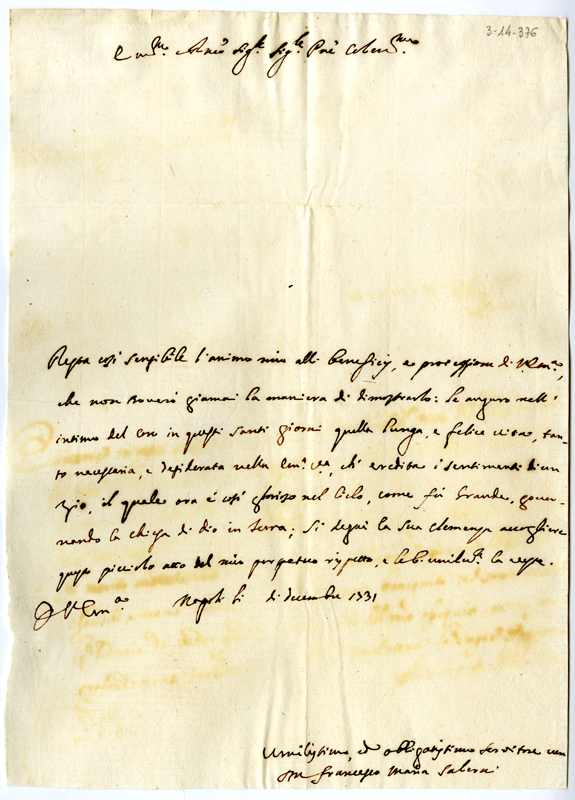 3-14-376
Em.mo Rev.o Sig.re Sig.re Pñe Colen.mo
Resta così sensibile l'animo mio alli beneficij, e protezzione di V. Em.a,
che non trovero giamai la maniera di dimostrarlo: le auguro nell'
intimo del Core in questi santi giorni quella lunga, e felice vita, tan-
to necessaria, e desiderata nella Em.a v.ra, ch'eredita i sentimenti di un
Zio, il quale ora é così glorioso nel Cielo, come fu Grande, gover-
nando la chiesa di Dio in terra; si degni la sua clemenza accogliere
questo piccolo atto del mio perpetuo rispetto, e le b. umilm.te la veste.
D. V. Em.a Napoli li di Decembre 1731
Umilissimo, ed obbligatissimo servitore vero
Francesco Maria Salerni